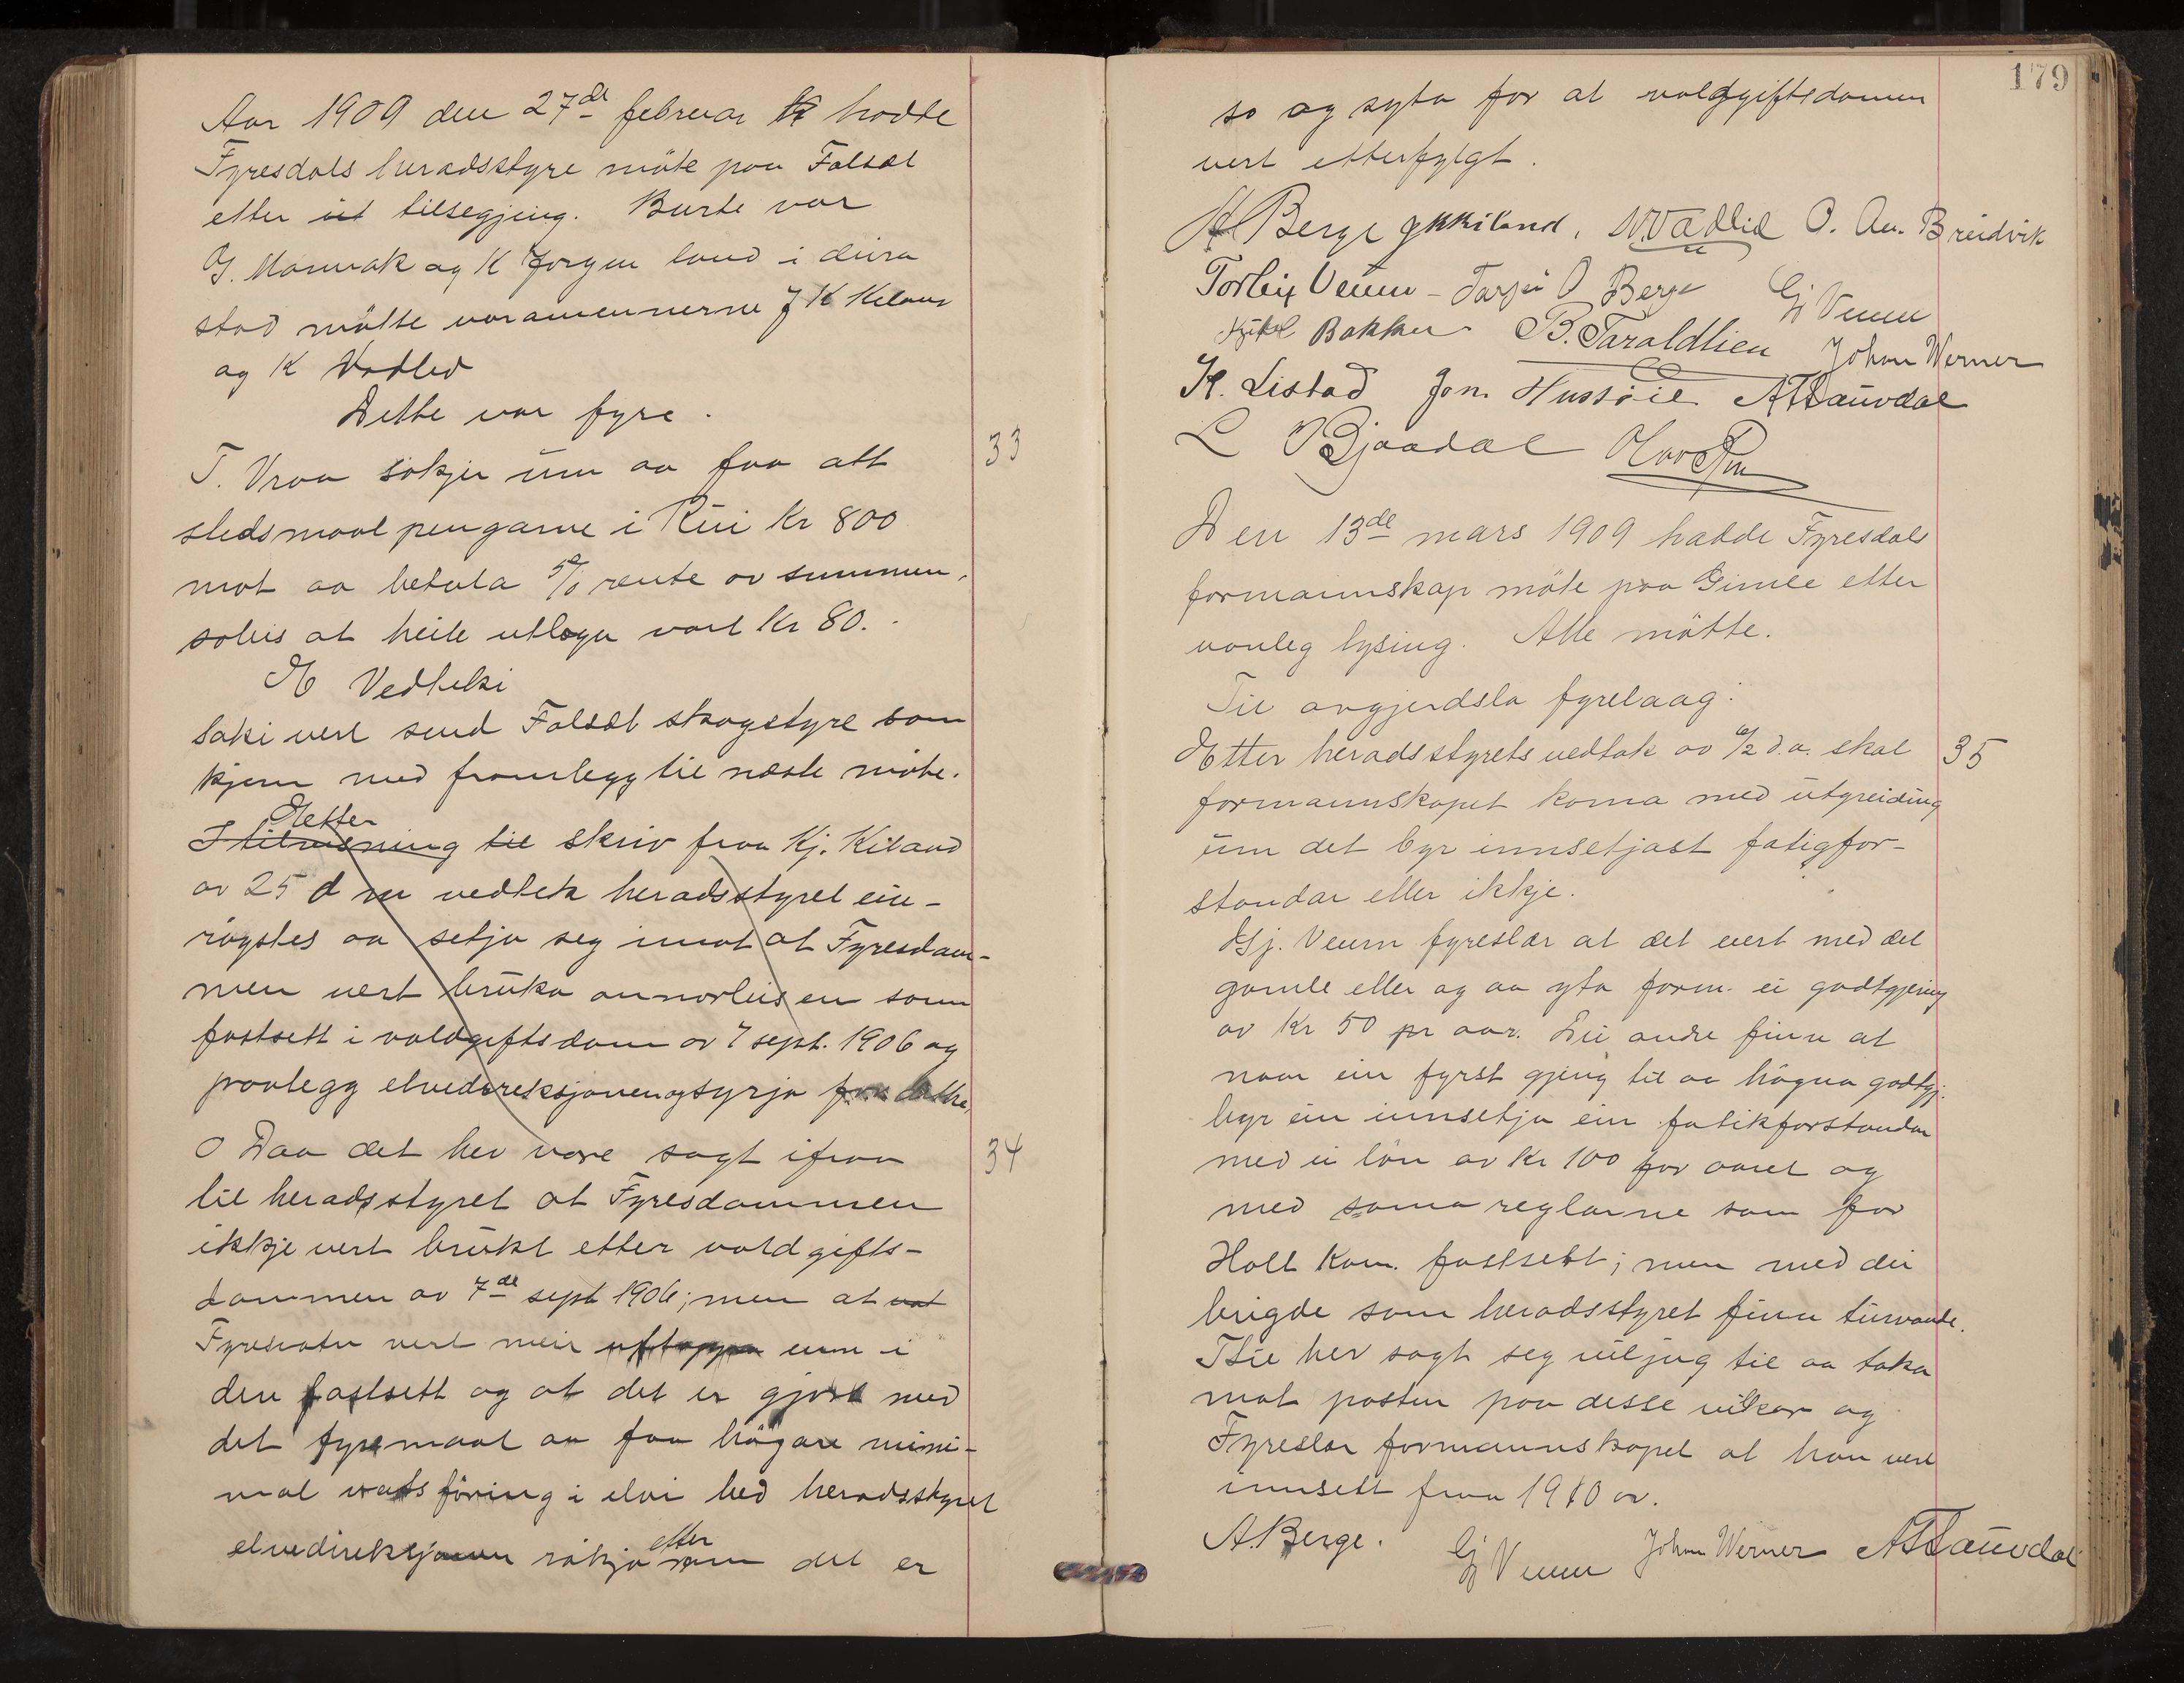 Aar 1909 den 27de februar hadde
Fyresdals heradsstyre möte paa Folsæt
etter ut tilsegjeing. Burte var
og K Jorgen land i deira
stad mötte varamennerne J K Kiland
og K Vadlid
Dette var fyre.
33
T. Vraa sökjer um aa faa att
stedsmaal pengarne i Rui Kr 800
mot aa betala 5% rente av summen,
soleis at heile utlogu vart Kr 80.
Vedteki
Saki vert send Folsæt skogstyre som
kjem med framlegg til næste möte.
Etter
I tilvisning til skriv fraa Kj. Kiland
av 25 d m vedtek heradsstyret ein-
röystes aa setja seg imot at Fyresdam-
men vert bruka annorleis en som
fastsett i valdgiftsdom av 7 sept. 1906 og
paalegg elvedireksjonen og syrja for dette,
34
O Daa det hev vore sagt ifraa
til heradsstyret at Fyresdammen
ikkje vert brukt etter valdgifts-
dommen av 7de sept 1906; men at vat
Fyresvatn vert meir uftappa enn i
den fastsett og at det er gjort med
det fyremaal aa faa högare mini-
mal vatsföring i elvi bed heradsstyret
elvedireksjonen sökja etter om det er
179
so og syta for at valdgiftsdomen
vert etterfylgt.
H Berge J K Kiland, N Vadlid O. Au. Breidvik
Torleif Veum - Tarjei O Berge Gj Veum
Bakken B. Taraldlien Johan Werner
K. Listad Jon Hussöie A T Lauvdal
L O Bjaadal
Den 13de mars 1909 hadde Fyresdals
formannskap möte paa Gimle etter
vanleg lysing. Alle mötte.
Til avgjerdsla fyrelaag:
35
Etter heradsstyrets vedtak av 6/2 d.a. skal
formannskapet koma med utgreiding
um det byr innsetjast fatigfor-
standar eller ikkje.
Gj. Veum fyreslær at det vert med det
gamle eller og aa yta form. ei godtgjering
av Kr 50 pr aar. Dei andre finn at
naar ein fyrst gjeng til aa högna godtgj.
byr ein innsetja ein fatikforstandar
med ei lön av Kr 100 for aaret og
med sama reglarne som for
Holt kom. fastsett; men med dei
brigde som heradsstyret finn turvande.
hev sagt seg viljug til aa taka
mot posten paa desse vilkor og
Fyreslær formannskapet at han vert
innsett fraa 1910 av.
A. Berge. Gj Veum Johan Werner A T Lauvdal